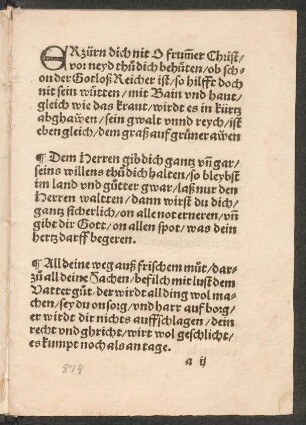 ERzürn dich nit O frum̃er Christ/
vor neyd thů dich behüten/ob sch-
on der Gotloß Reicher ist/so hilfft doch
nit sein wůtten/mit Bain vnd haut/
gleich wie das kraut/wirdt es in kurtz
abghawen/sein gwalt vnnd reych/ist
eben gleich/dem graß auff grůner awen
¶ Dem Herren gib dich gantz vñ gar/
seins willens thů dich halten/so bleybst
im land vnd gůtter gwar/laß nur den
Herren waltten/dann wirst du dich/
gantz sicherlich/on alle not erneren/vñ
gibt dir Gott/on allen spot/was dein
hertz darff begeren.
¶ All deine weg auß frischem můt/dar-
zů all deine Sachen/befilch mit lust dem
Vatter gůt/der wirdt all ding wol ma-
chen/sey du on sorg/vnd harr auf borg/
er wirdt dir nichts auffschlagen/dein
recht vnd ghricht/wirt wol geschlicht/
es kumpt noch als an tage.
a ij